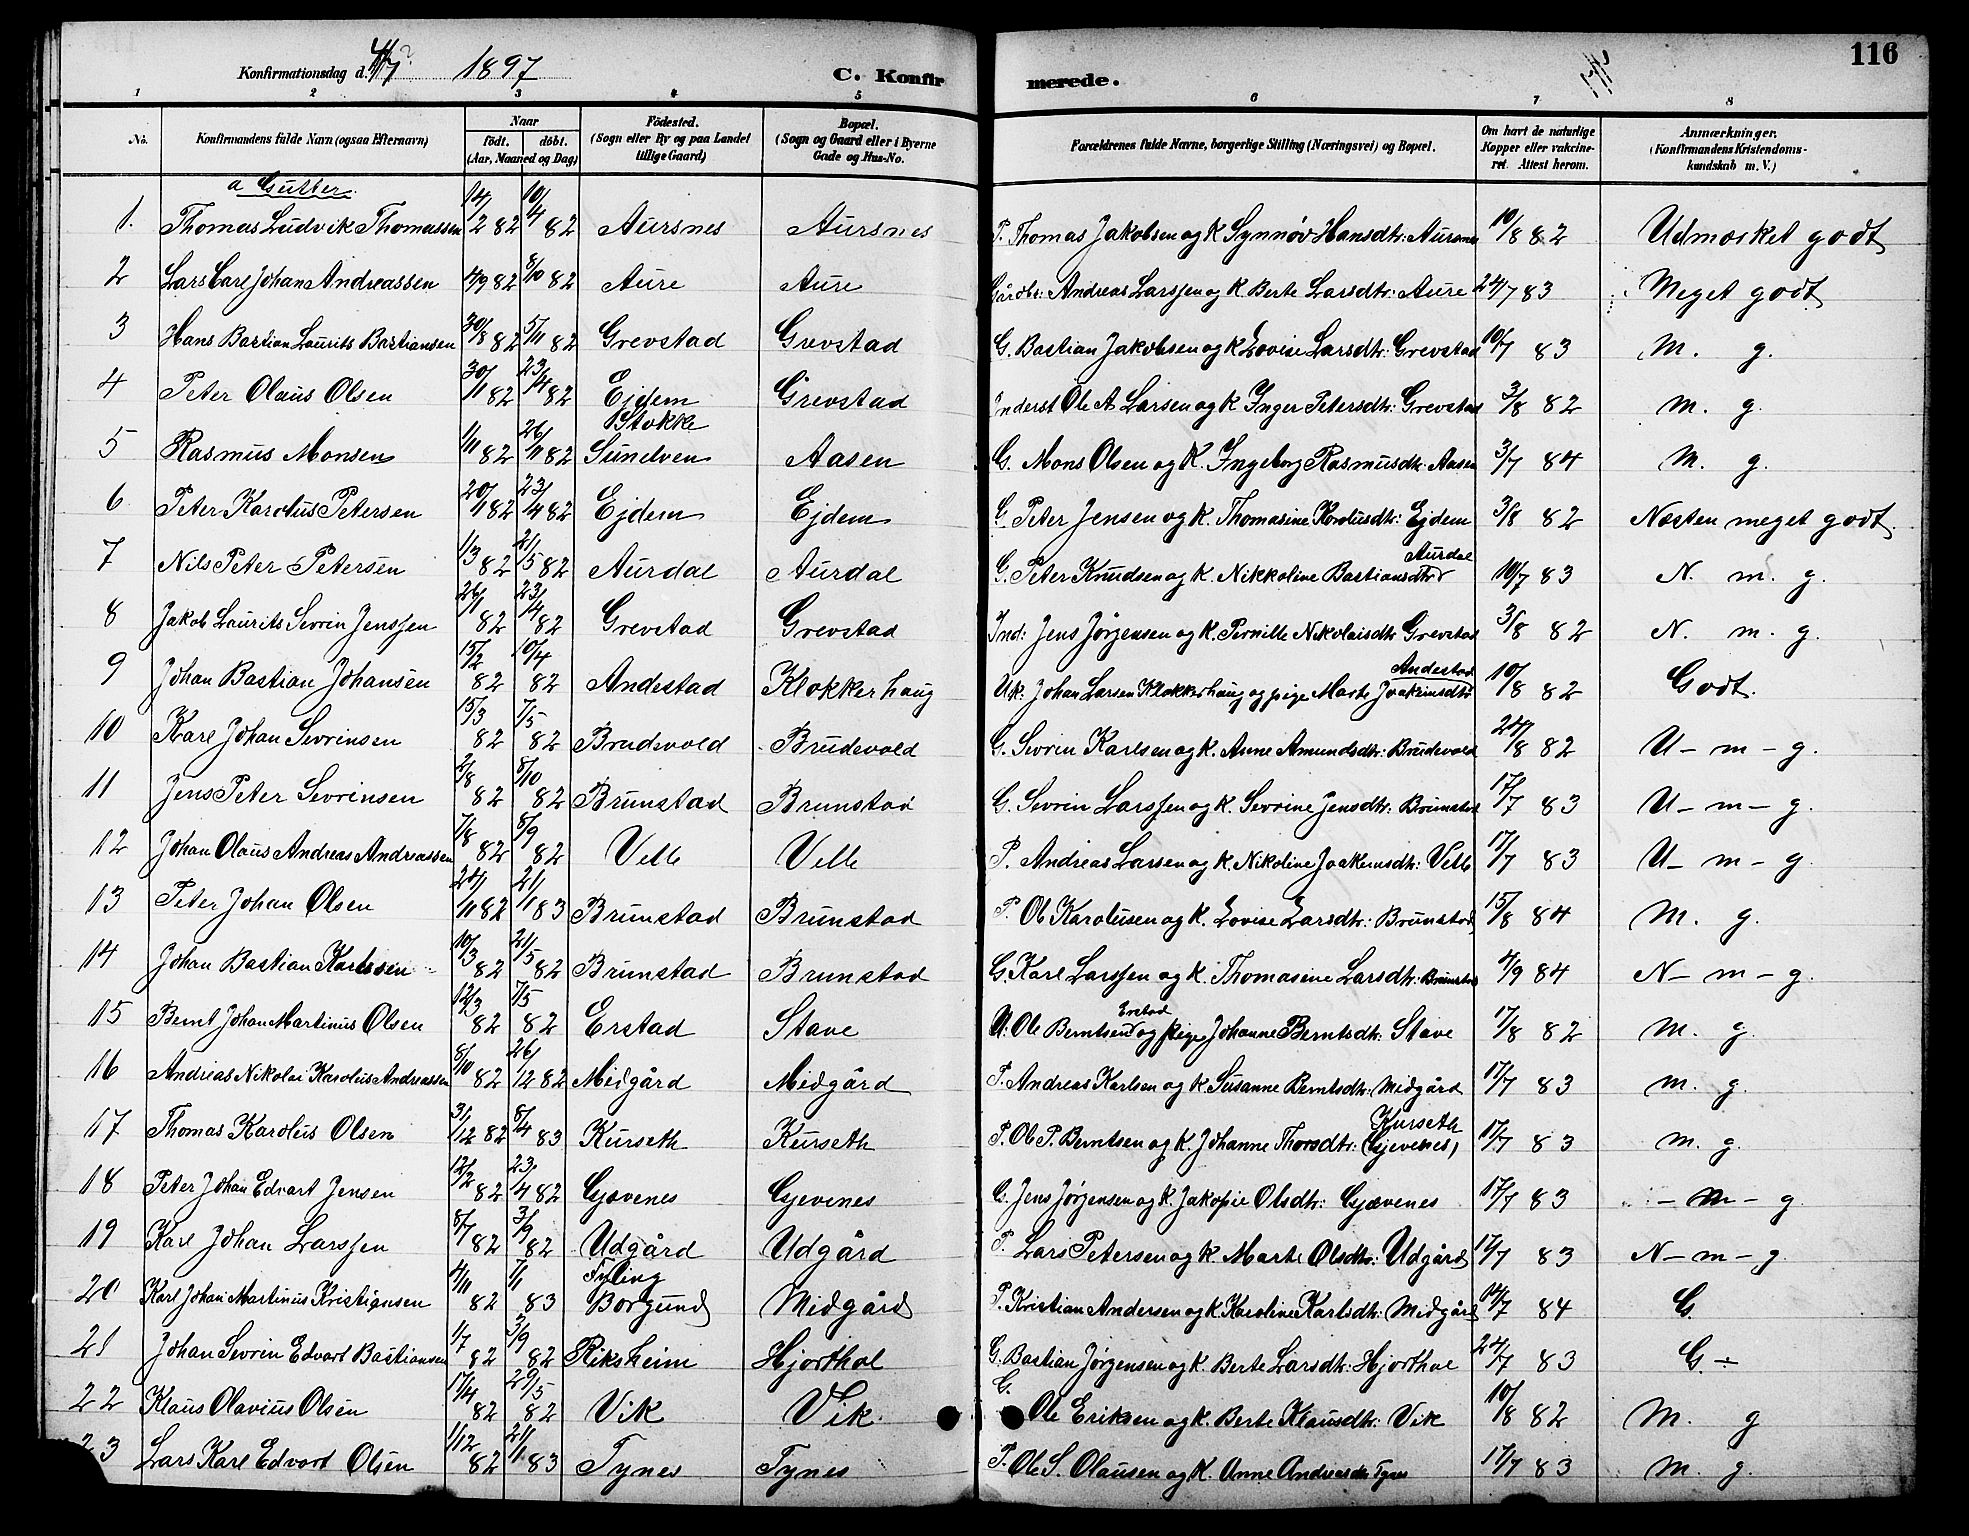 116
Konfirmationsdag d. 1897 C. Konfirmerede.
1 2 3 4 5 6 7 8
No. Konfirmandens fulde Navn (ogsaa Efternavn) Naar födt. döbt. (Aar, Maaned og Dag) Födested. (Sogn eller By og paa Landet tillige Gaard) Bopæl. (Sogn og Gaard eller i Byerne Gade og Hus-No. Forældrenes fulde Navne, borgerlige Stilling (Næringsvei) og Bopæl. Om havt de naturlige Kopper eller vakcineret. Attest herom. Anmærkninger. (Konfirmandens Kristendomskundskab m. V.)
a Gutter.
1. Thomas Ludvik Thomassen 14/2 82 10/4 82 Aursnes Aursnes P. Thomas Jakobsen og K Synnøv Hansdtr: Aursnes 10/8 82 Udmærket godt
2 Lars Carl Johan Andreassen 4/9 82 8/10 82 Aure Aure Gårdbr: Andreas Larssen og K Berte Larsdtr: Aure 24/7 83 Meget godt
3 Hans Bastian Laurits Bastiansen 30/8 82 5/11 82 Grevstad Grevstad G. Bastian Jakobsen og K Lovise Larsdtr: Grevstad 10/7 83 M. g.
4 Peter Olaus Olsen 30/1 82 23/4 82 Ejdem Grevstad Inderst Ole A Larsen og K Inger Petersdtr: Grevstad 3/8 82 M. g.
5 Rasmus Monsen 1/11 82 26/11 82 Stokke Sundven Aasen G. Mons Olsen og K. Ingeborg Rasmusdtr: Aasen 3/7 84 M. g.
6 Peter Karolus Petersen 20/1 82 23/4 82 Ejdem Ejdem G Peter Jensen og K. Thomasine Karolusdtr: Ejdem 3/8 82 Næsten meget godt.
7 Nils Peter Petersen 1/3 82 21/5 82 Aurdal Aurdal G. Peter Knudsen og K. Nikkoline Bastiansdtr Aurdal 10/7 83 N. m. g.
8 Jakob Laurits Sevrin Jenssen 26/1 82 23/4 82 Grevstad Grevstad Ind: Jens Jørgensen og K. Pernille Nikolaisdtr Grevstad 3/8 82 N. m. g.
9 Johan Bastian Johansen 15/2 82 10/4 82 Andestad Klokkerhaug Uk: Johan Larsen Klokkerhaug og pige Marte Joakimsdtr Andestad 10/8 82 Godt.
10 Karl Johan Sevrinsen 15/3 82 7/5 82 Brudevold Brudevold G. Sevrin Karlsen og K. Anne Amundsdtr: Brudevold 24/8 82 U - m - g.
11 Jens Peter Sevrinsen 2/8 82 8/10 82 Brunstad Brunstad G. Sevrin Larssen og K. Sevrine Jensdtr: Brunstad 17/7 83 U - m - g.
12 Johan Olaus Andreas Andreassen 7/8 82 8/9 82 Velle Velle P. Andreas Larsen og K. Nikoline Joakemsdtr: Velle 17/7 83 U - m - g.
13 Peter Johan Olsen 24/11 82 21/1 83 Brunstad Brunstad P. Ole Karolusen og K. Lovise Larsdtr: Brunstad 15/8 84 M. g.
14 Johan Bastian Karlssen 10/3 82 21/5 82 Brunstad Brunstad G. Karl Larssen og K. Thomasine Larsdtr: Brunstad 4/9 84 N - m - g.
15 Bernt Johan Martinus Olsen 12/3 82 7/5 82 Erstad Stave U: Ole Berntsen Erstad og pige Johanne Berntsdtr: Stave 17/8 82 M. g.
16 Andreas Nikolai Karolus Andreassen 8/10 82 26/12 82 Midgård Midgård P. Andreas Karlsen og K. Susanne Berntsdtr: Midgård 17/7 83 m. g.
17 Thomas Karolus Olsen 31/12 82 8/4 83 Kurseth Kurseth P. Ole P. Berntsen og K. Johanne Thorsdtr: Kurseth (Gjevenes) 17/7 83 m. g.
18 Peter Johan Edvart Jensen 12/2 82 23/4 82 Gjævenes Gjevenes G. Jens Jørgensen og K. Jakopie Olsdtr: Gjævenes 17/7 83 - m - g
19 Karl Johan Larssen 8/7 82 3/9 82 Udgård Udgård P. Lars Petersen og K. Marte Olsdtr: Udgård 17/7 83 N - m - g.
20 Karl Johan Martinus Kristiansen 4/11 82 7/1 83 Fyling Borgund Midgård P. Kristian Andersen og K. Karoline Karlsdtr: Midgård 14/7 84 G.
21 Johan Sevrin Edvart Bastiansen 1/7 82 3/9 82 Riksheim Hjorthol G. Bastian Jørgensen og K. Berte Larsdtr: Hjorthol 24/7 83 G ÷
22 Klaus Olavius Olsen 17/4 82 29/5 82 Vik Vik. G. Ole Eriksen og K. Berte Klausdtr: Vik 10/8 82 M. g
23 Lars Karl Edvart Olsen 1/12 82 21/1 83 Tynes Tynes P. Ole S. Olausen og K. Anne Andreasdtr Tynes 17/7 83 M. g.